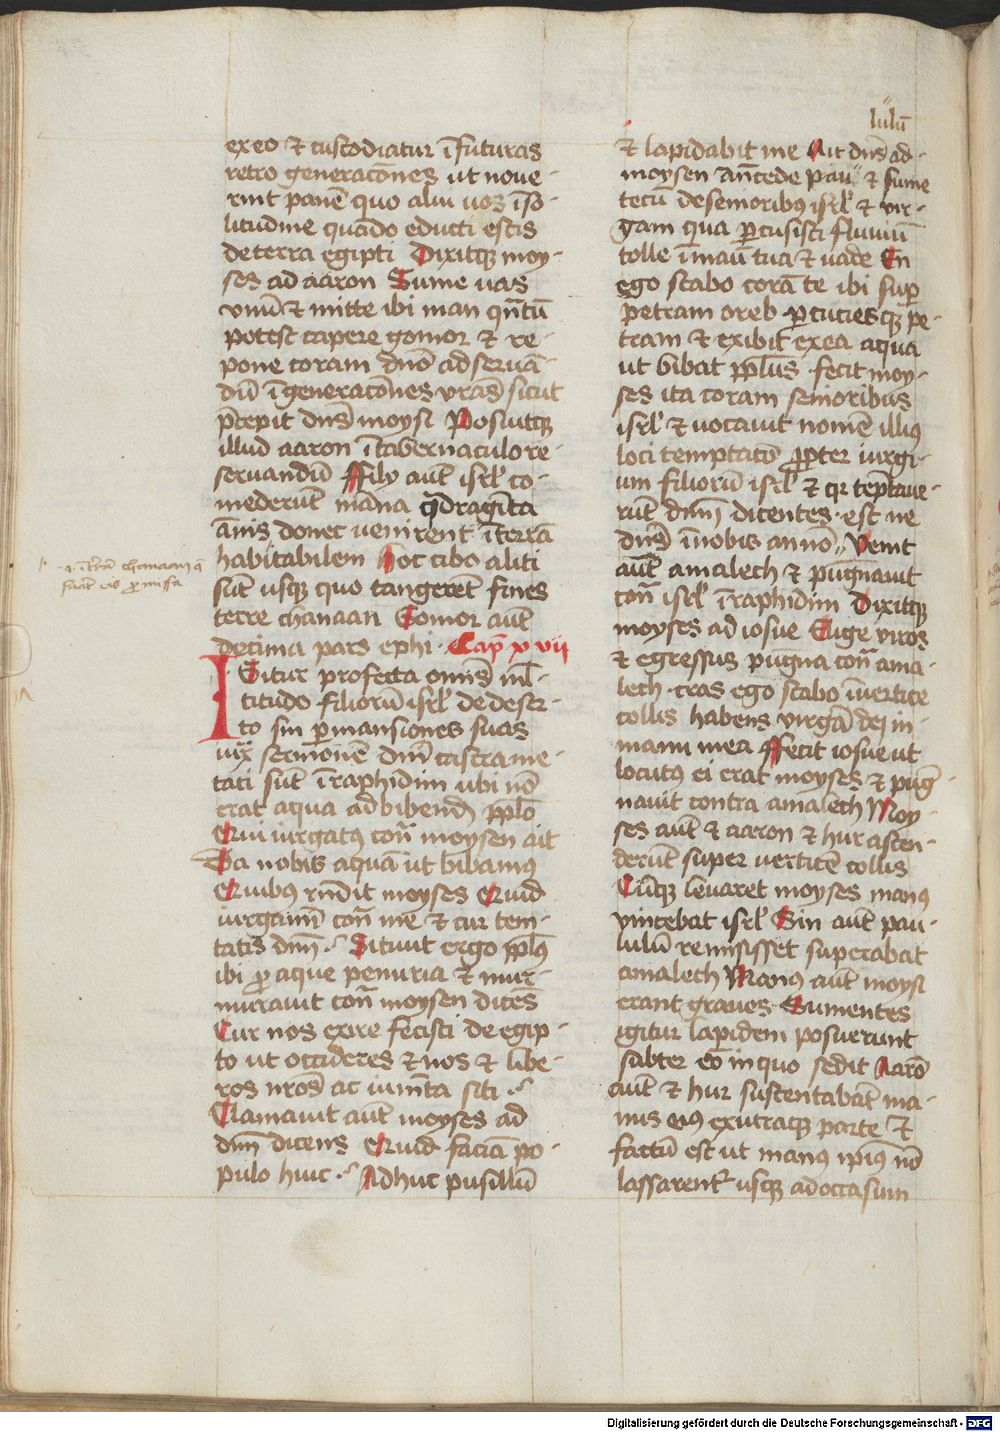 exeo et custodiatur ī futuras
retro generacōnes ut noue-
rint panē quo alui uos ī so-
litudine quādo educti estis
de terra egipti Dixitque moy-
ses ad aaron Sume uas
vnū et mitte ibi man qn̄tū
potest capere gomor et re-
pone coram dnō ad seruā-
dū ī generacōnes vrās sicut
p̄cepit dns̄ moysi Posuitque
illud aaron ī tabernaculo re-
seruandū Ffilij aut̄ isrl' co-
mederūt māna qͣdragīta
ānis donec uenirent ī terrā
habitabilem Hoc cibo aliti
sūt usque quo tangerēt fines
terre chanaan Gomor aut̄
decima pars ephi· Cap̄ xvii
IGitur profecta omīs ml̄-
titudo filiorū isrl' de deser-
to sin ꝑ mansiones suas
iuxͣ sermonē dnī castrame-
tati sūt ī raphidim ubi nō
erat aqua ad bibend' ppl̄o
Qui iurgatꝰ con̄ moysen ait
Da nobis aquā ut bibamꝰ
Quibꝰ rn̄dit moyses Quid
iurgamī con̄ me et cur tem-
tatis dnm̄ · Sitiuit ergo ppl̄ꝰ
ibi ꝓ aque penuria et mur-
murauit con̄ moysen dicēs
Cur nos exire fecisti de egip-
to ut occideres et nos et libe-
ros nrōs ac iumēta siti ·
Clamauit aut̄ moyses ad
dnm̄ dicens Quid faciā po-
pulo huic · Adhuc pusillū
lulū
et lapidabit me Ait dns̄ ad-
moysen An̄cede pau" et sume
tecū de senioribꝰ isrl' et vir-
gam qua ꝑcusisti fluuiū
tolle ī manu tua et uade En
ego stabo corā te ibi suꝑ
petram oreb ꝑcuciesque pe-
tram et exibit ex ea aqua
ut bibat ppl̄us · fecit moy-
ses ita coram senioribus
isrl' et uocauit nomē illiꝰ
loci temptatō ꝓpter iurgi-
um filiorū isrl' et qr tēptaue-
rūt dnm̄ dicentes· est ne
dns̄ ī nobis an nō" Venit
aut̄ amalech et pugnauit
con̄ isrl' ī raphidim Dixitque
moyses ad iosue Elige viros
et egressus pugna con̄ ama-
lech · cras ego stabo ī uertice
collis habens virgā dei in-
manu mea Ffecit iosue ut
locutꝰ ei erat moyses et pug-
nauit contra amalech Moy-
ses aut̄ et aaron et hur ascen-
derūt super uerticē collis
Cūque leuaret moyses manꝰ
vincebat isrl' Sin aut̄ pau-
lulū remisisset superabat
amalech Manꝰ aut̄ moysi
erant graues Sumentes
igitur lapidem posuerunt
subter eō in quo sedit Aarō
aut̄ et hur sustentabāt ma-
nus eiꝰ ex utraque parte Et
factū est ut manꝰ ipiꝰ nō
lassarentᷣ usque ad occasum
Digitalisierung gefördert durch die Deutsche Forschungsgemeinschaft - DFG